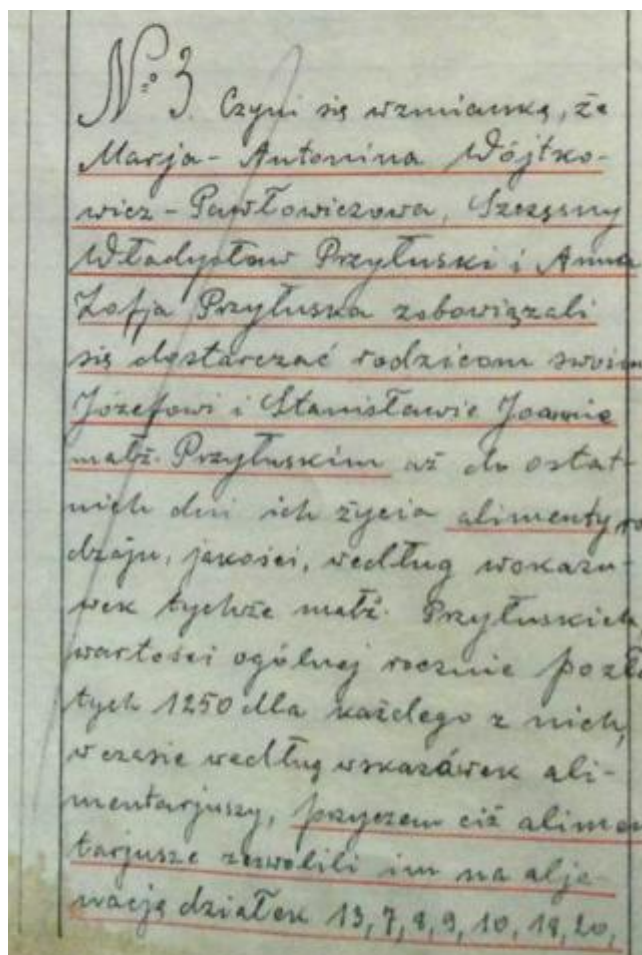 No 3. Czyni się wzmiankę, że
Marja - Antonina Wójtko-
wicz - Pawłowiczowa, Szczęsny
Władysław Przyłuski i Anna
Zofja Przyłuska zobowiązali
się dostarczać rodzicom swoim
Józefowi i Stanisławie Joannie
małż. Przyłuskim aż do ostat-
nich dni ich życia alimenty ro
dzaju, jakości, według wskazó-
wek tychże małż. Przyłuskich
wartości ogólnej rocznie po zło
tych 1250 dla każdego z nich,
w czasie według wskazówek ali-
mentarjuszy, przyczem ciż alimen
tarjusze zezwolili im na alje-
nację działek 13, 7, 8, 9, 10, 18, 20,